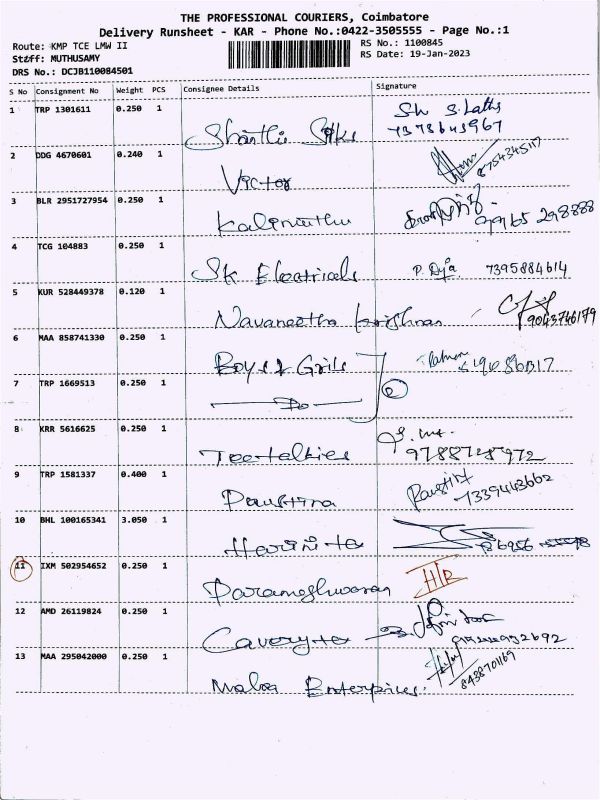 THE PROFESSIONAL COURIERS, Coimbatore
Delivery Runsheet - KAR - Phone No.:0422-3505555 - Page No.:1
Route: KMP TCE LMW II RS No.: 1100845
Staff: MUTHUSAMY RS Date: 19-Jan-2023
DRS No.: DCJB110084501
S No Consignment No Weight PCS Consignee Details Signature
1 TRP 1301611 0.250 1 Shanthi Silks
2 DDG 4670601 0.240 1 Victor 8754345117
3 BLR 2951727954 0.250 1 Kalimuthu
4 TCG 104883 0.250 1 SK Electricals 7395884614
5 KUR 528449378 0.120 1 Navaneetha krishnan 9043746179
6 MAA 858741330 0.250 1 Boys & Girls
7 TRP 1669513 0.250 1 Do 2
8 KRR 5616625 0.250 1 Teetalkies
9 TRP 1581337 0.400 1 Paustina 7339443662
10 BHL 100165341 3.050 1 Harinita
11 IXM 502954652 0.250 1 Parameshwaran
12 AMD 26119824 0.250 1
13 MAA 295042000 0.250 1 Enterprises 8438701169